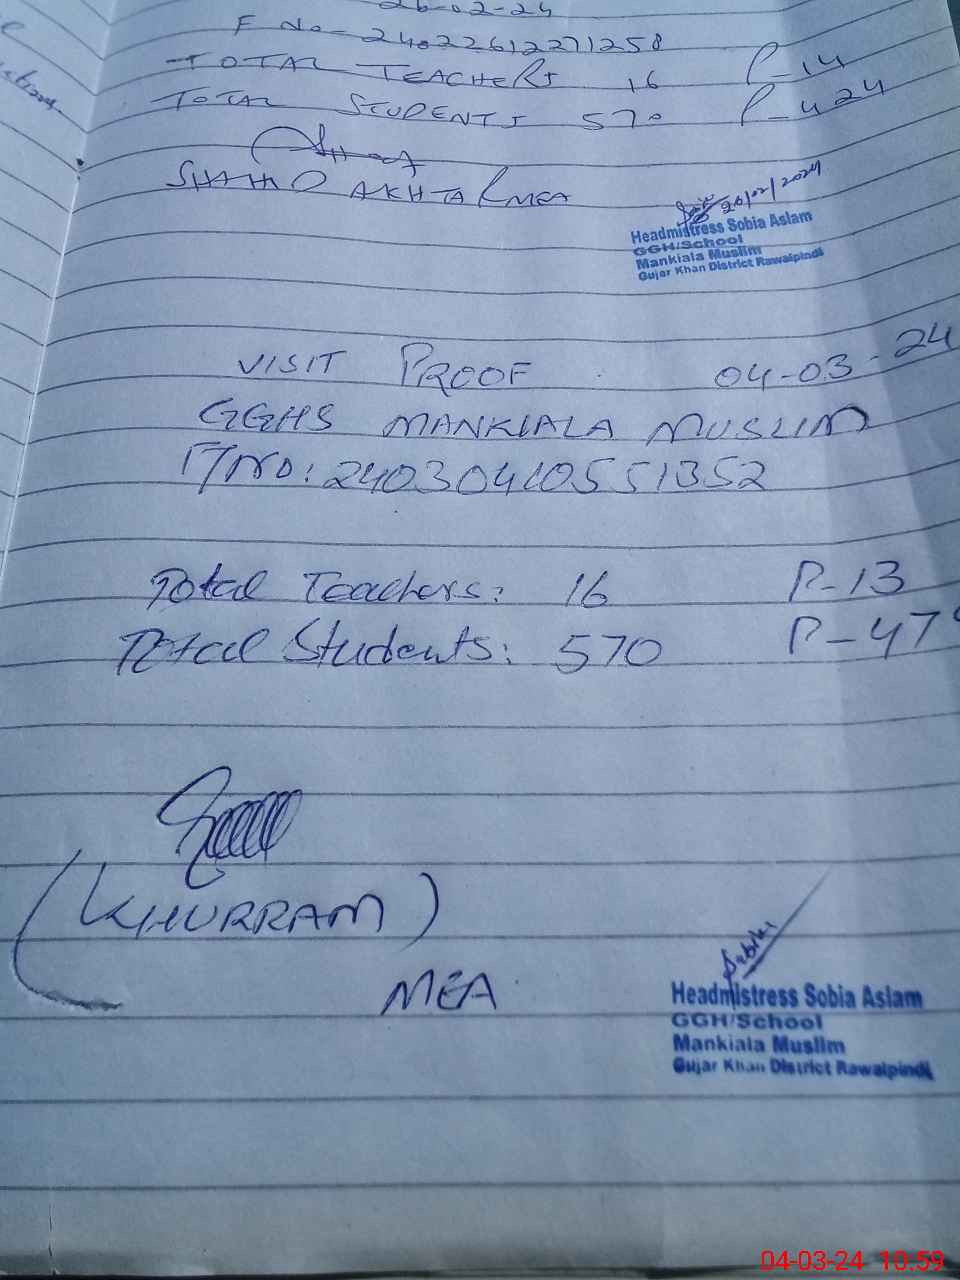 26-02-24
F No- 24022612271258
TOTAL TEACHERS 16 P-14
TOTAL STUDENTS 570 P-424
SHAHID AKHTAR MEA
26/02/2024
Headmistress Sobia Aslam
GGH/School
Mankiala Muslim
Gujar Khan District Rawalpindi
VISIT PROOF 04-03-24
GGHS MANKIALA MUSLIM
F/NO: 24030410551352
Total Teachers: 16 P-13
Total Students: 570 P-47
(KHURRAM)
MEA
Headmistress Sobia Aslam
GGH/School
Mankiala Muslim
Gujar Khan District Rawalpindi
04-03-24 10:59